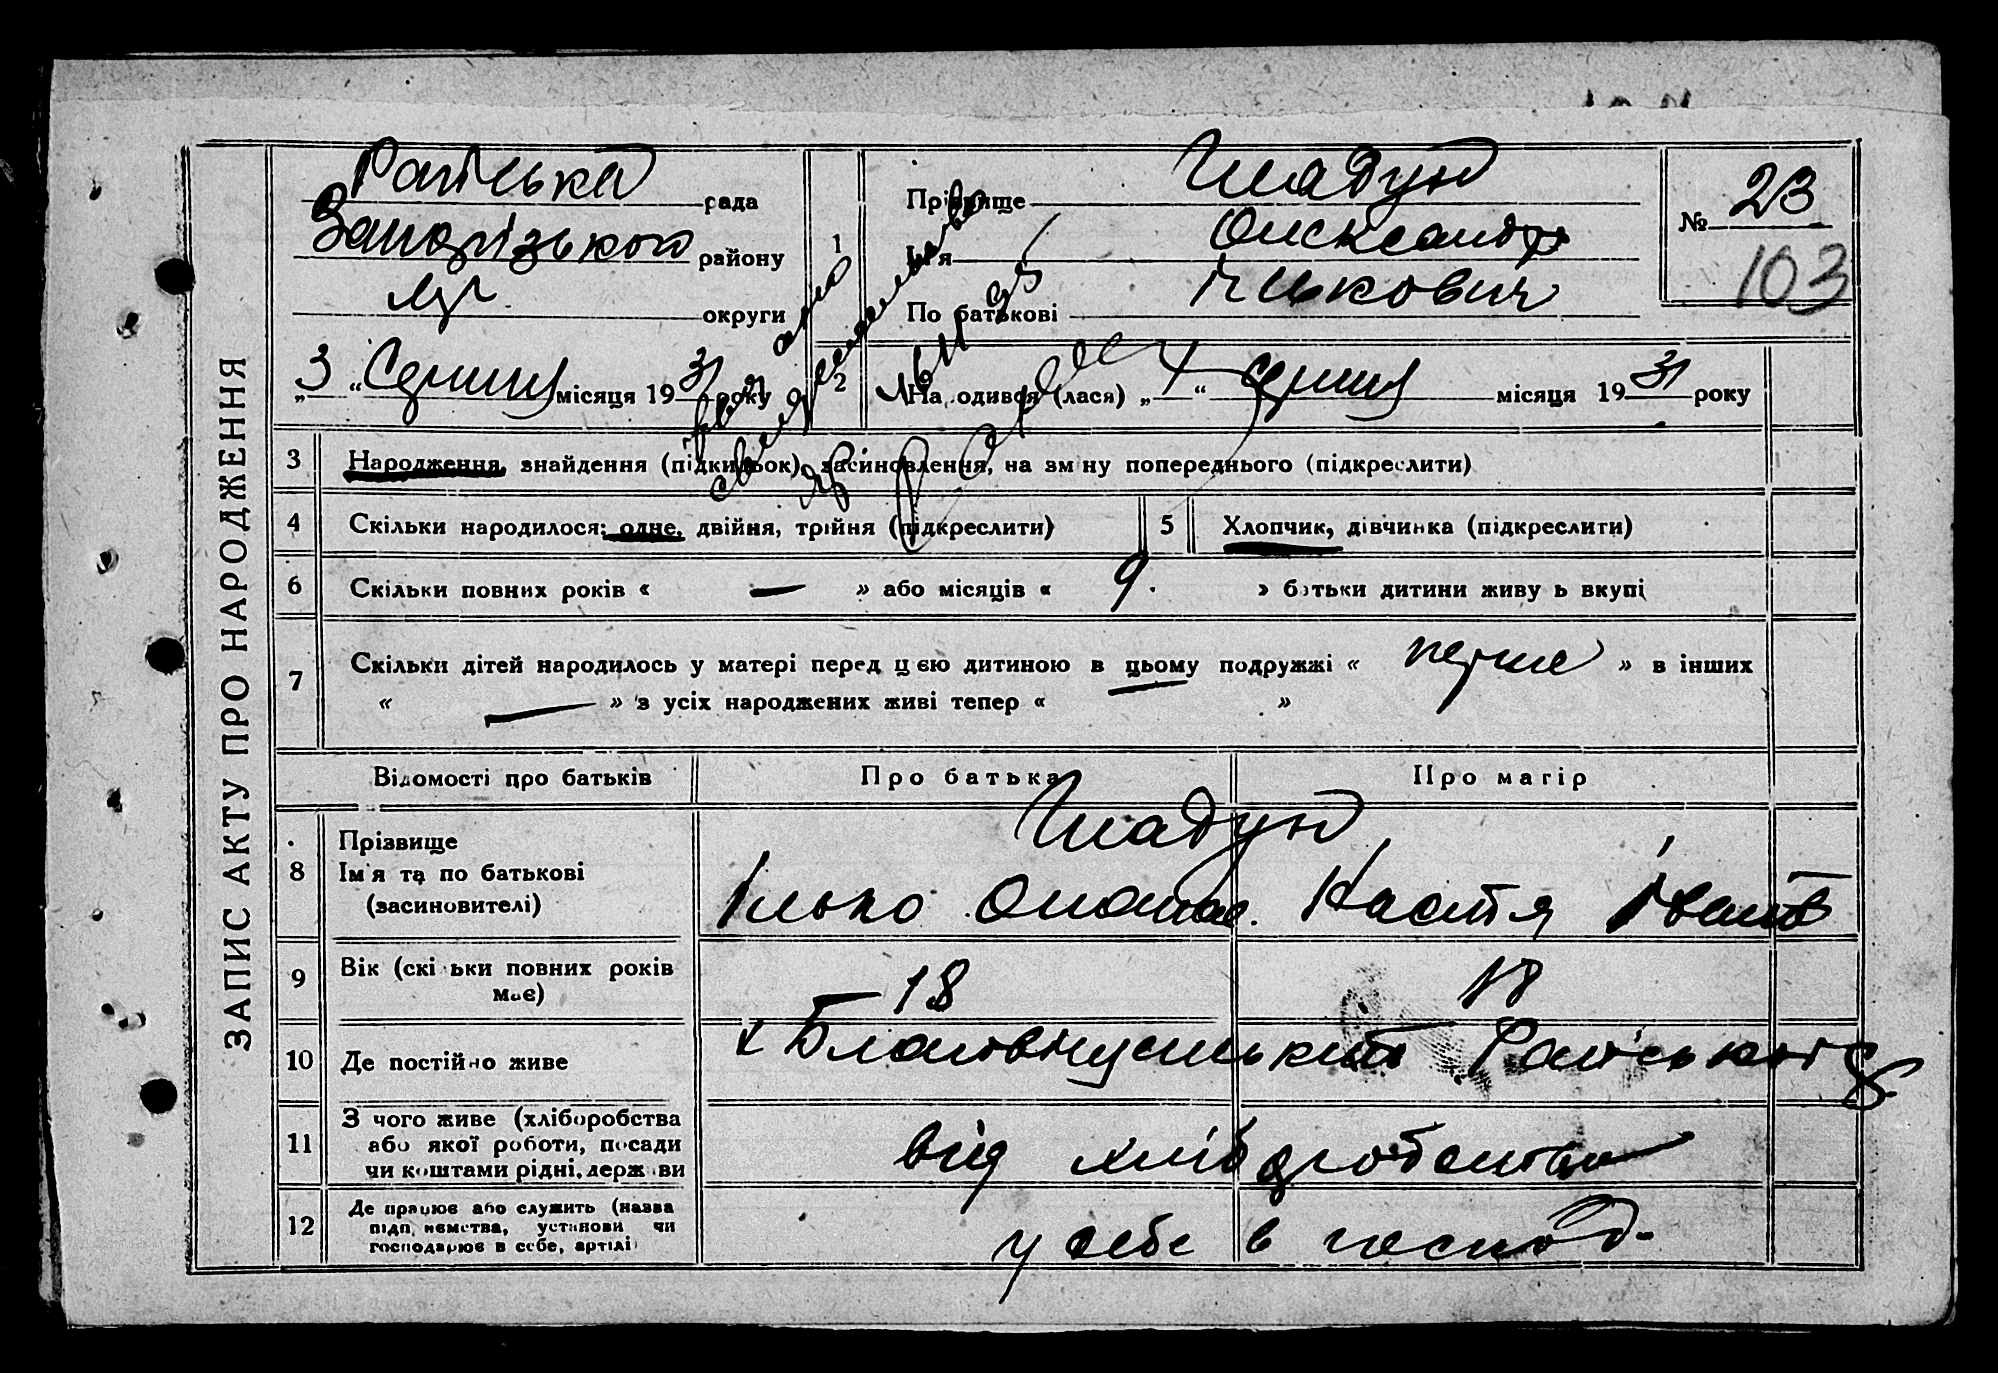 ЗАПИС АКТУ ПРО НАРОДЖЕННЯ
рада
Запорізького району
округи
„3“ Серпня місяця 1931 року
1
Прізвище Шадун
Ім'я Олександр
По батькові Ількович
№ 23
103
2
Народився (лася) „ “ серпня місяця 1931 року
3 Народження, знайдення (підкидьок), засиновлення, на зміну попереднього (підкреслити)
4 Скільки народилося: одне, двійня, трійня (підкреслити)
5 Хлопчик, дівчинка (підкреслити)
6 Скільки повних років « — » або місяців « 9. » батьки дитини живуть вкупі
7 Скільки дітей народилось у матері перед цією дитиною в цьому подружжі « перше » в інших
« — » з усіх народжених живі тепер « »
Відомості про батьків
Про батька
Про матір
8 Прізвище
Ім'я та по батькові
(засиновителі)
Шадун
Ілько Опанас. Настя Іванів
9 Вік (скільки повних років
має)
18
18
10 Де постійно живе
х
11 З чого живе (хліборобства
або якої роботи, посади
чи коштами рідні, держави
від хліборобства
12 Де працює або служить (назва
підприємства, установи чи
господарює в себе, артілі)
у себе в господ.